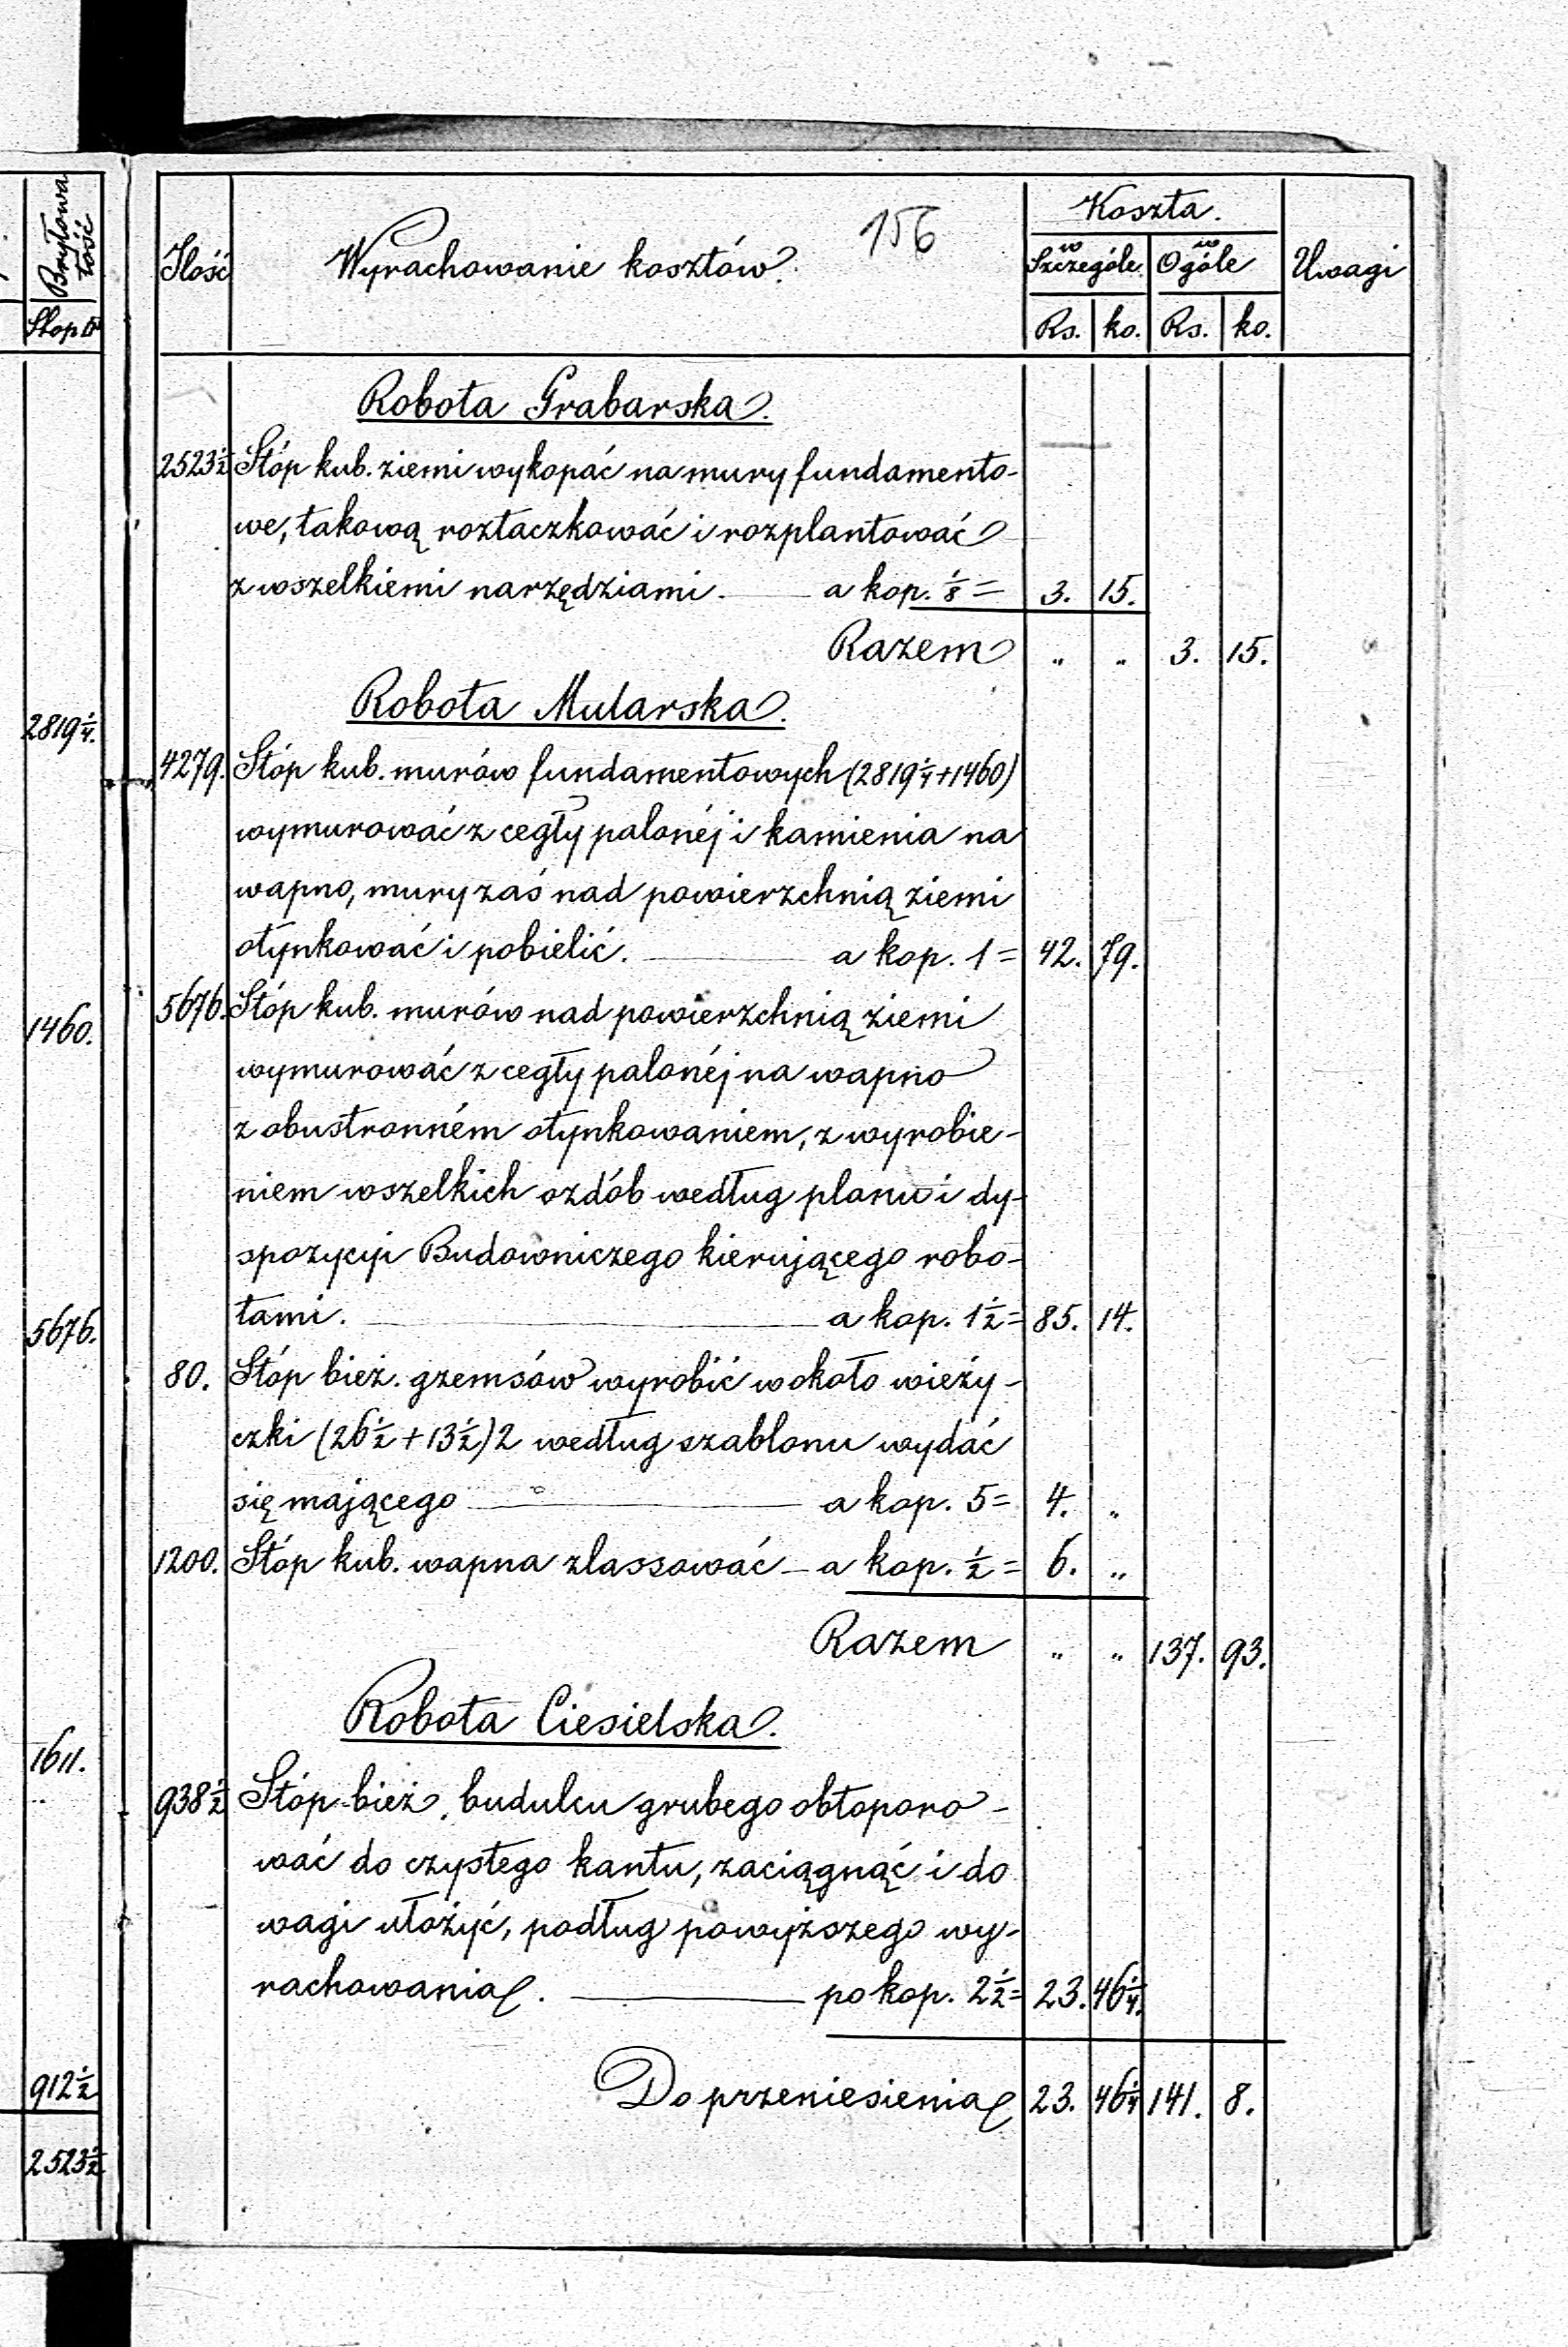 Bryłowa
tość
Stop kb
2819 1/4.
1460.
5676.
1611.
912 1/2
2523 1/2
156
Ilość Wyrachowanie kosztów. Koszta. Uwagi
w Szczególe w Ogóle
Rs. ko. Rs. ko.
Robota Grabarska.
2523 1/2 Stóp kub. ziemi wykopać na mury fundamento-
we, takową roztaczkować i rozplantować
z wszelkiemi narzędziami. — a kop. 1/8 = 3. 15.
Razem „ „ 3. 15.
Robota Mularska.
4279. Stóp kub. murów fundamentowych (2819 1/4 + 1460)
wymurować z cegły palonéj i kamienia na
wapno, mury zaś nad powierzchnią ziemi
otynkować i pobielić. — a kop. 1 = 42. 79.
5676. Stóp kub. murów nad powierzchnią ziemi
wymurować z cegły palonéj na wapno
z obustronném otynkowaniem, z wyrobie-
niem wszelkich ozdób według planu i dy-
spozycyi Budowniczego kierującego robo-
tami. — a kop. 1 1/2 = 85. 14.
80. Stóp bież. gzemsów wyrobić wokoło wieży-
czki (26 1/2 + 13 1/2) 2 według szablonu wydać
się mającego — a kop. 5 = 4. „
1200. Stóp kub. wapna zlassować — a kop. 1/2 = 6. „
Razem „ „ 137. 93.
Robota Ciesielska.
938 1/2 Stóp bież. budulcu grubego obtoporo-
wać do czystego kantu, zaciągnąć i do
wagi ułożyć, podług powyższego wy-
rachowania. — po kop. 2 1/2 = 23. 46 1/4.
Do przeniesienia 23. 46 1/4 141. 8.